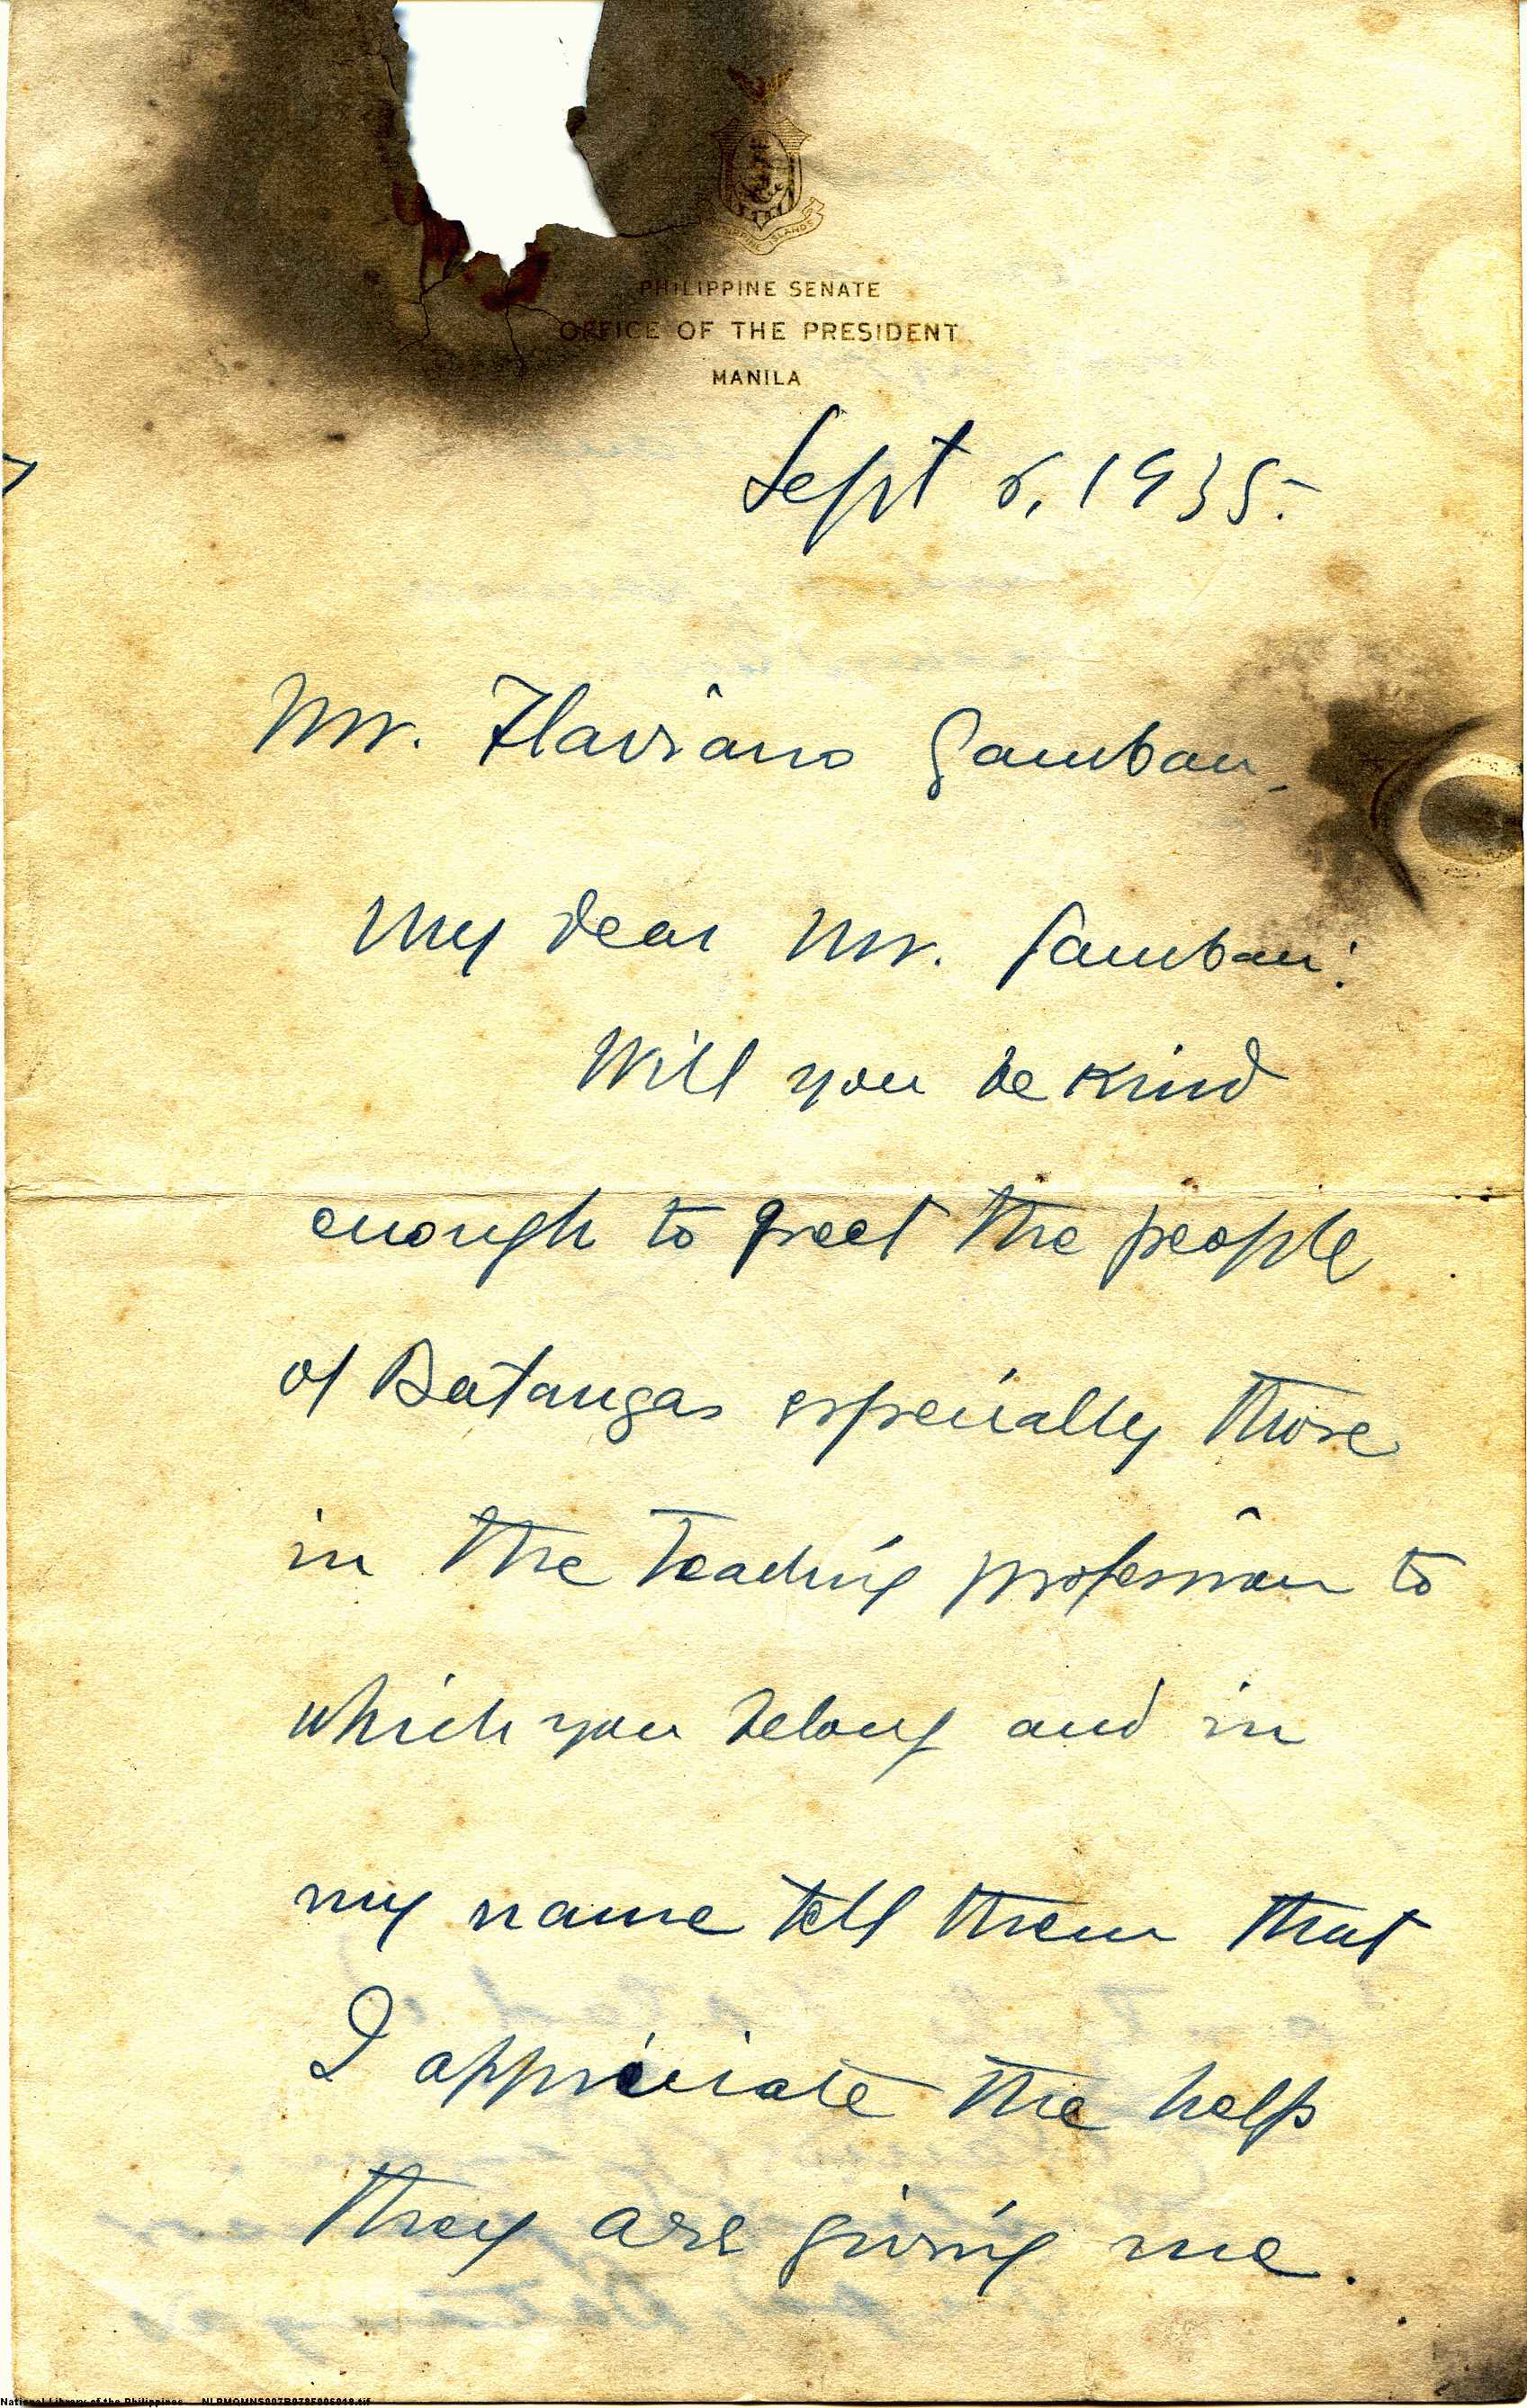 PHILIPPINE ISLANDS
PHILIPPINE SENATE
OFFICE OF THE PRESIDENT
MANILA
Sept 5, 1935.
Mr. Flaviano Gamban,
My dear Mr. Gamban:
Will you be kind
enough to greet the people
of Batangas especially those
in the teaching profession to
which you belong and in
my name tell them that
I appreciate the help
they are giving me.
National Library of the Philippines